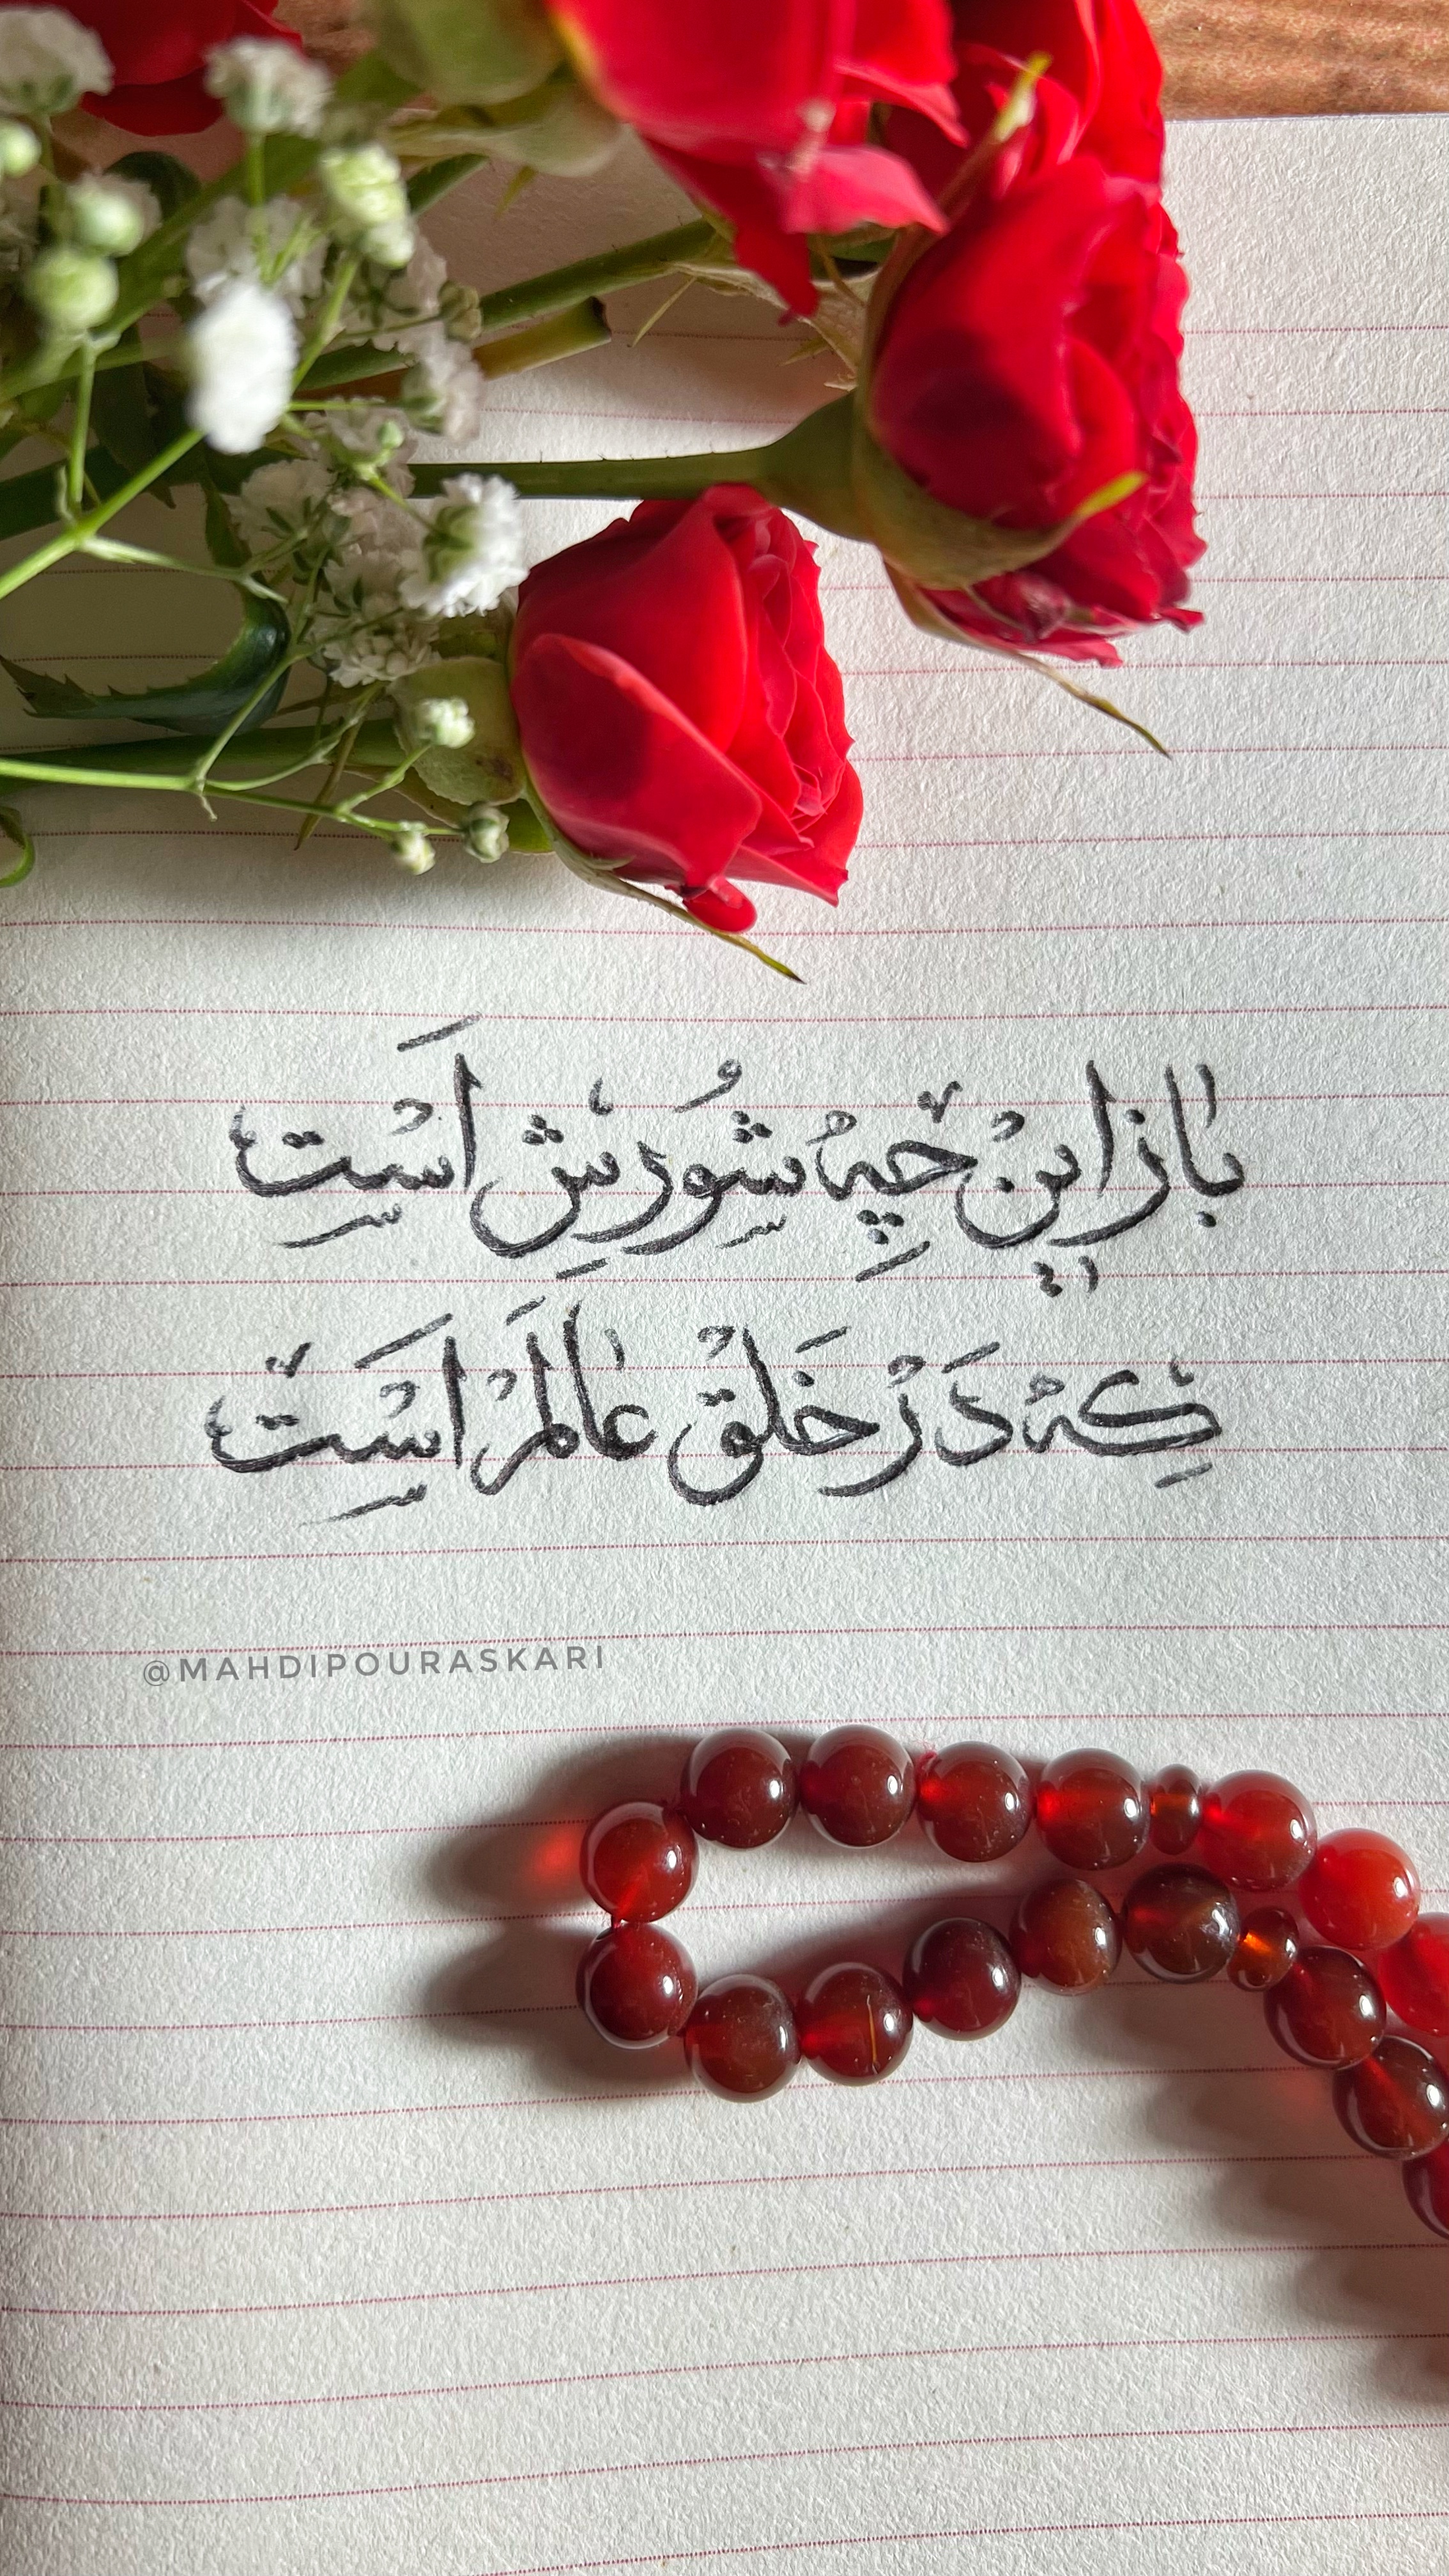 باز این چه شورش است
که در خلق عالم است
@MAHDIPOURASKARI